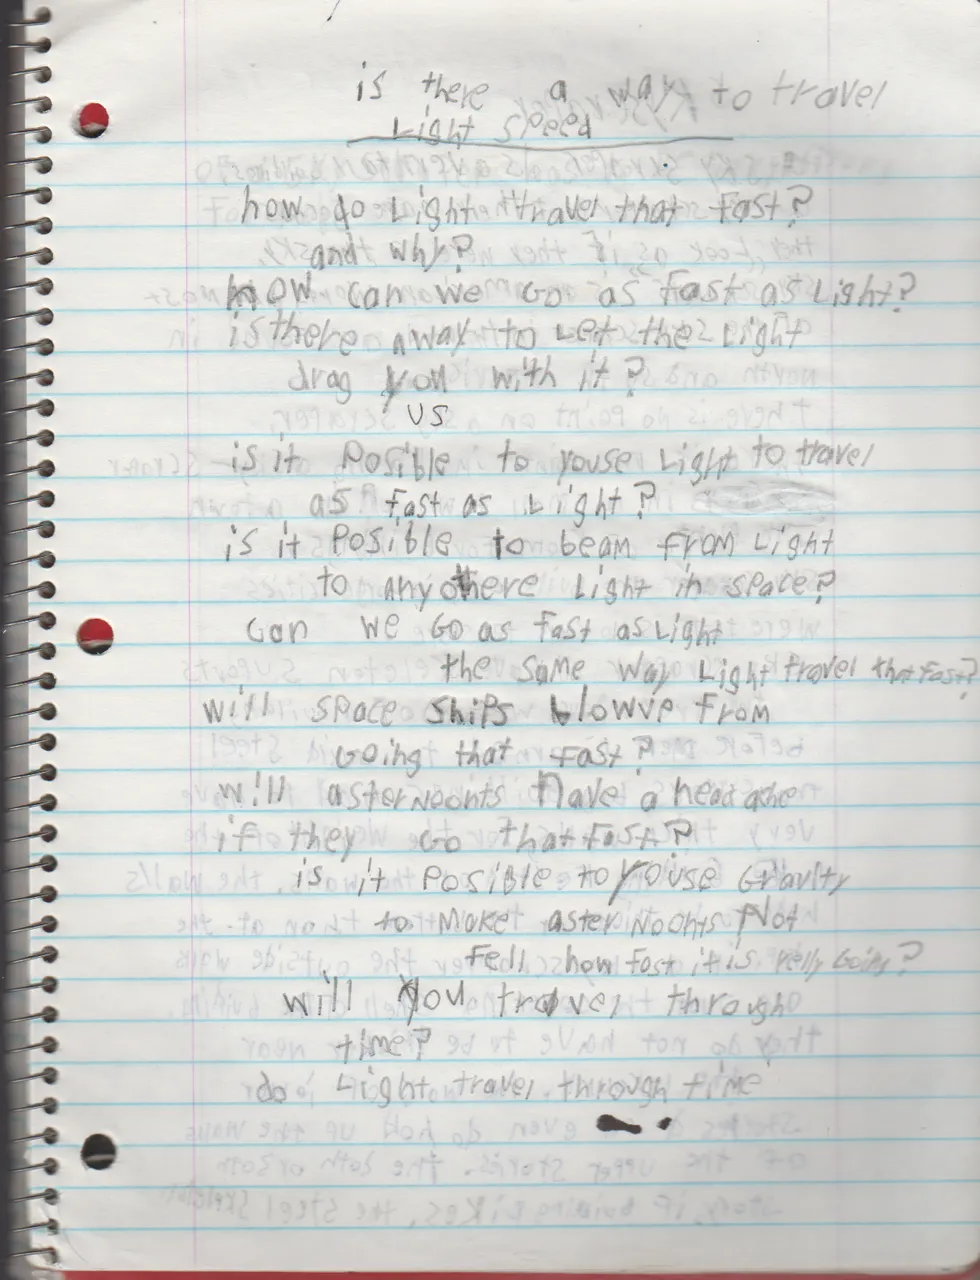 is there a way to travel
Light speed
how do Light travel that Fast?
and why?
how can we Go as Fast as Light?
is there away to Let the Light
drag you with it?
us
is it Posible to youse Light to travel
as fast as Light?
is it Posible to beam from Light
to any othere Light in space?
can we Go as fast as Light
the same way Light travel that Fast?
will space ships blowve from
Going that Fast?
will asterNoonts have a head ache
if they Go that Fast?
is it Posible to youse Gravity
to Make asterNoonts Not
Fell how fast it is relly Going?
will you travel through
time?
do Light travel through time